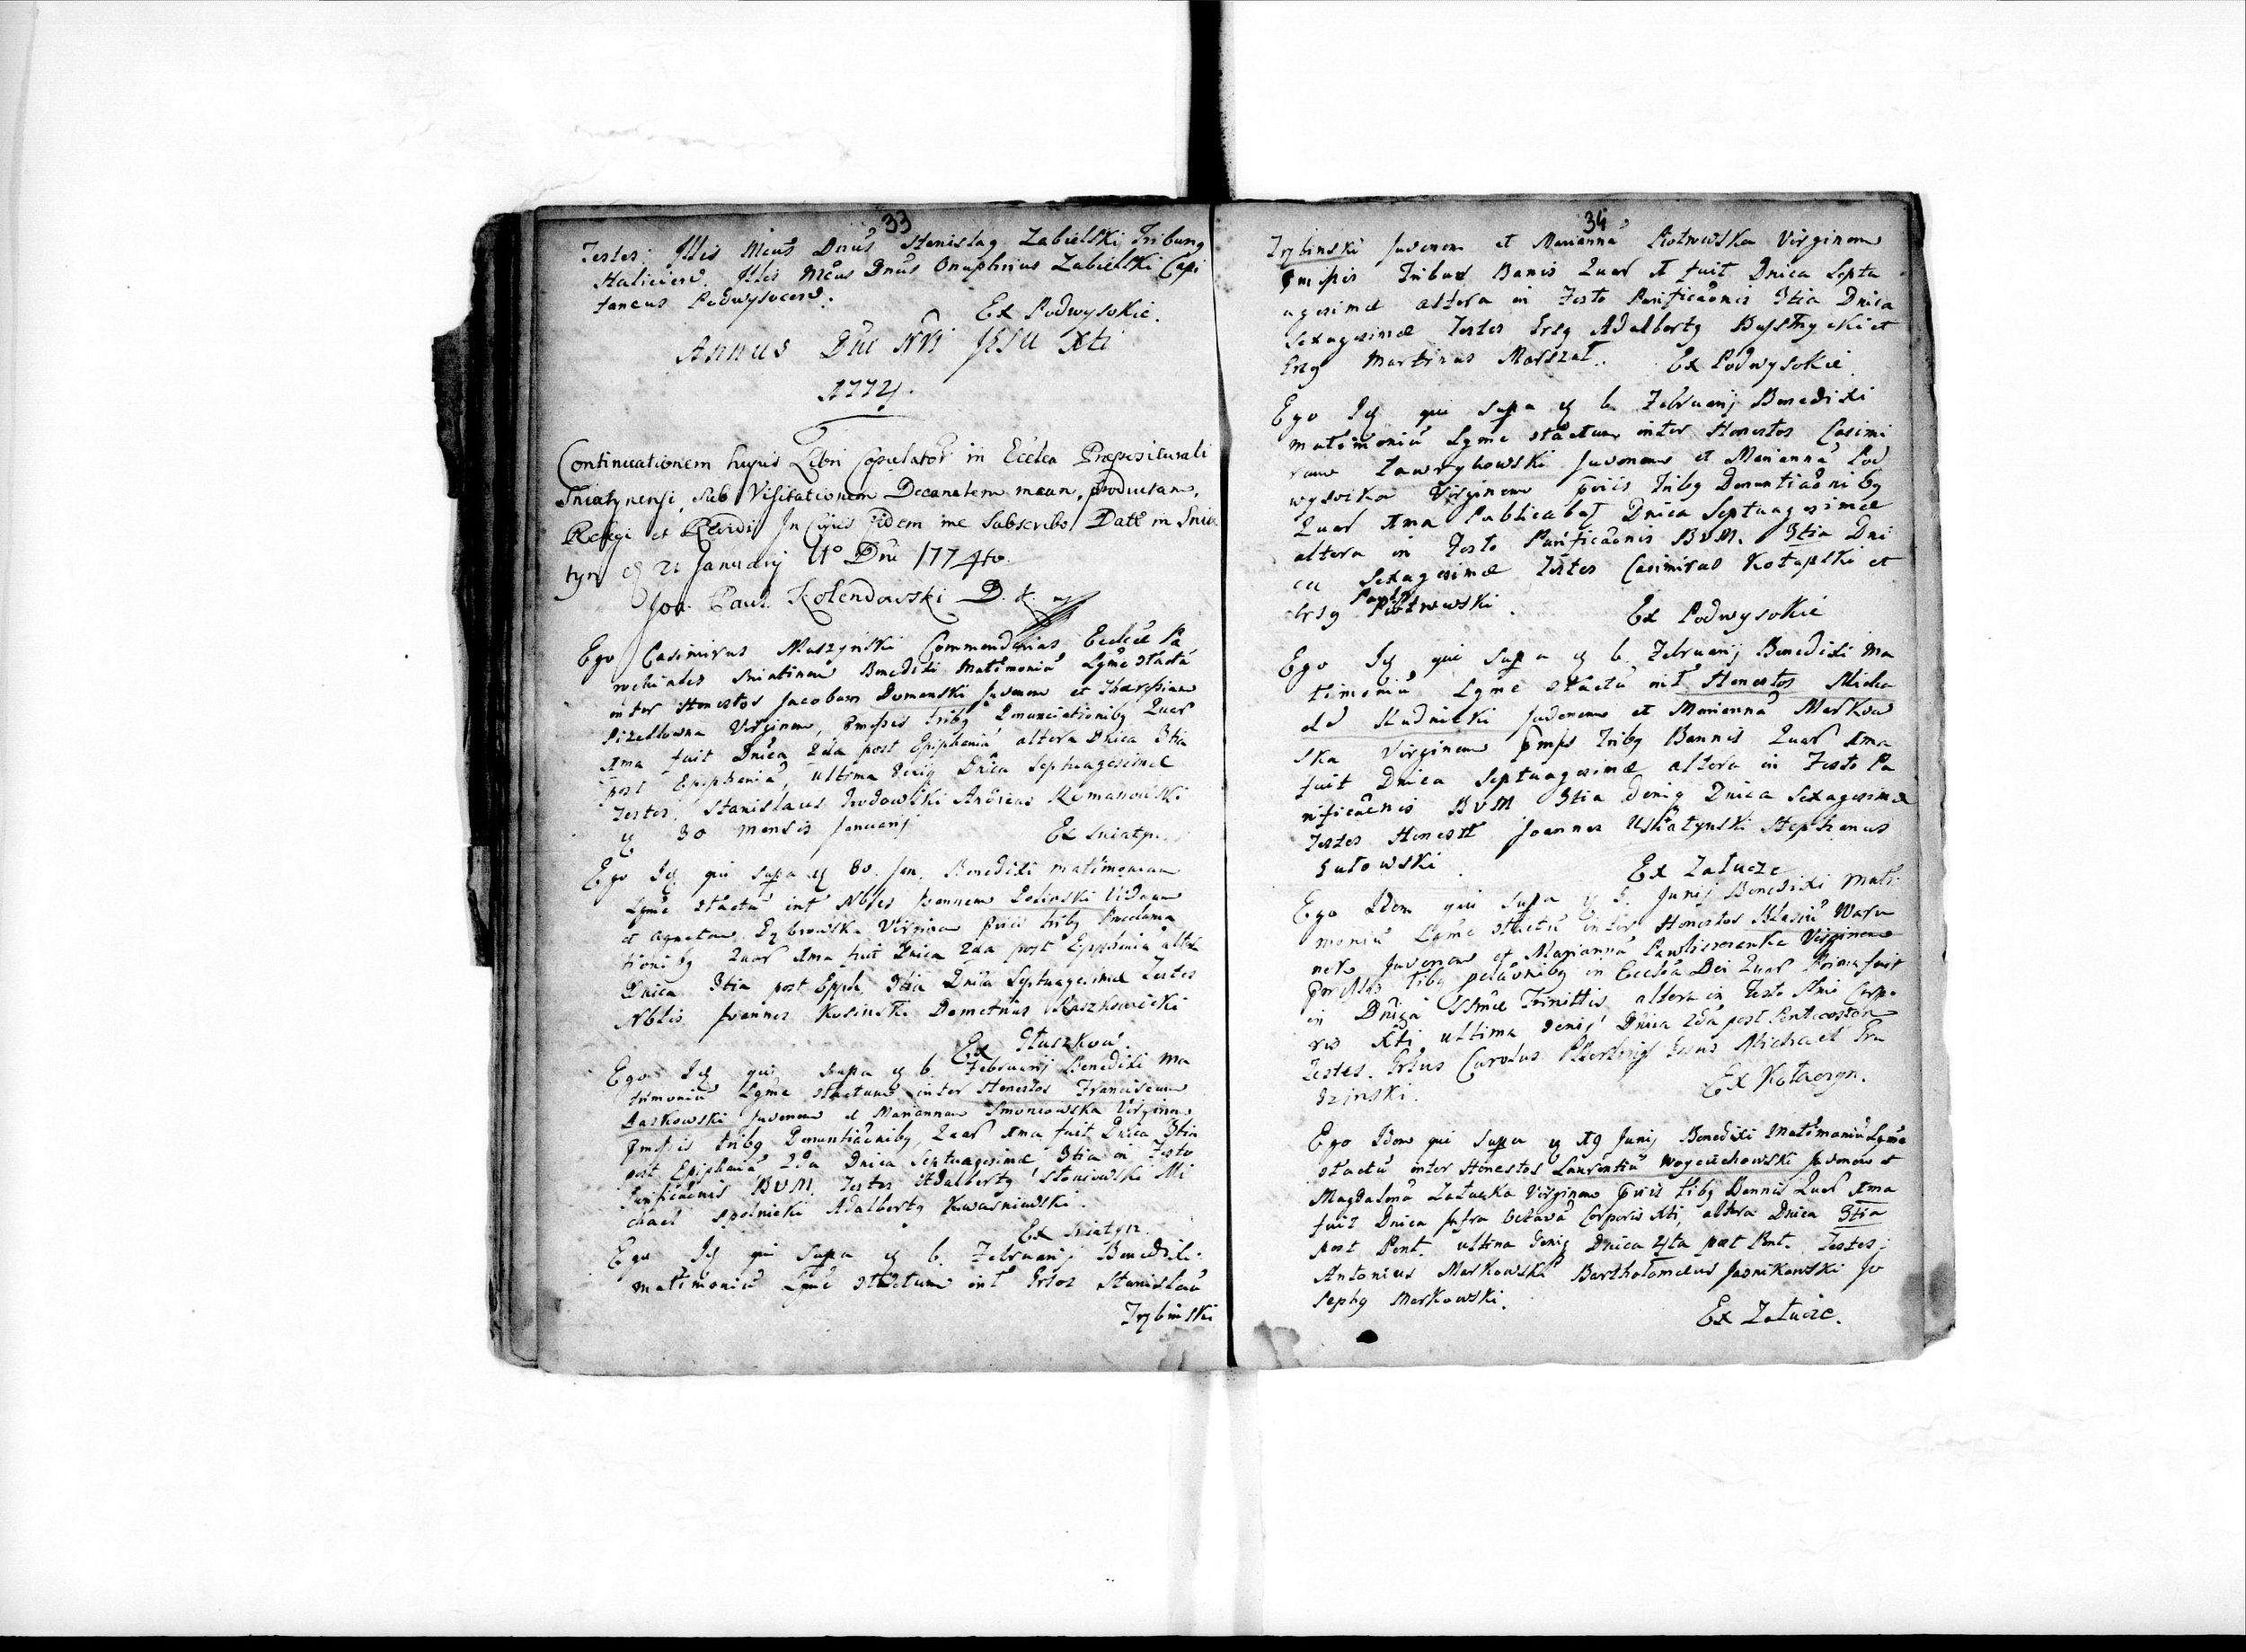 33
Testes: Illis Mcus Dnus Stanislaꝯ Zabielski Tribunꝯ
Halicien. Illis Mcus Dnus Onuphrius Zabielski Capi
taneus Podwysocen.
Ex Podwysokie.
Annus Dni Nri Jesu Xti
1774.
Continuationem hujus Libri Copulator in Ecclea Præpositurali
Sniatynensi, sub Visitationem Decanalem meam, productam,
Relegi et In Cujus fidem me Subscribo Datt in Snia
tyn d 21 January Ao Dni 1774to.
Jos. Paul. Kolendowski D. S. mp
Ego Casimirus Muszynski Commendarius Ecclæ Pa
rochiales Sniatinen Benedixi Matimoniu Lgme stactu
inter Honestos Jacobum Domanski Juvenem et Theressiam
Pizellowna Virginem, pmissis tribꝯ Denunciationibꝯ Quar
1ma fuit Dnica 2da post Epiphania altera Dnica 3tia
post Epiphania, ultima deniq Dnica Septuagesimæ
Testes, Stanislaus Andreas Romanowski
d 30 Mensis Januarij
Ex Sniatyn
Ego Id qui supa d 30. Jan. Benedixi matimonium
Lgme stactu int Nbles Joannem Viduum
et Agnetam Virginem pviis tribꝯ Proclama
tionibꝯ Quar 1ma fuit Dnica 2da post Epphenia alte
Dnica 3tia post Epph. 3tia Dnica Septuagesimæ Testes
Nbles Joannes Kosinski Demetrius
Ex Tłuszkow.
Ego Id qui supa d 6 Februarij Benedixi Ma
trimoniu Lgme stactum inter Honestos Franciscum
Daszkowski Juvenem et Mariannam Virginem
pmissis tribꝯ Denuntiaonibꝯ, Quar 1ma fuit Dnica 3tia
post Epiphania 2da Dnica Septuagesimæ 3tia in Festo
Purificaonis BVM. Testes Adalbertꝯ Stoniowski Mi
chael Spolnicki Adalbertꝯ Kwasniewski.
Ex Sniatyn
Ego Id qui Supa d 6. Februarij Benedixi
matimoniu Lgme stactum int Grsos Stanislau
Trzbinski
34
Trzbinski Juvenem et Marianna Piotrowska Virginem
pmissis Tribus Banis Quar 1 fuit Dnica Septu
agesimæ altera in Festo Purificaonis 3tia Dnica
Sexagesimæ Testes Grsꝯ Adalbertꝯ et
Grsꝯ Martinus Marszał. Ex Podwysokie.
Ego Id qui supa d 6 Februarij Benedixi
matimoniu Lgme stactum inter Honestos Casimi
rum Zawrykowski Juvenem et Marianna Pod
wysocka Virginem pviis tribꝯ Denuntiaonibꝯ
Quar 1ma Publicabat Dnica Septuagesimæ
altera in Festo Purificaonis BVM. 3tia Dni
ca Sexagesimæ Testes Casimirus et
Grsꝯ Piotrowski.
Ex Podwysokie
Ego Id qui supa d 6 Februarij Benedixi Ma
timoniu Lgme stactu int Honestos Micha
el Rudnicki Juvenem et Marianna Markow
ska Virginem pmss Tribꝯ Bannis Quar 1ma
fuit Dnica Septuagesimæ altera in Festo Pu
rificaonis BVM 3tia deniq Dnica Sexagesimæ
Testes Honestt Joannes Uszatynski Stephanus
Gutowski.
Ex Załucze
Ego Idem qui supa d 5. Junij Benedixi Mati
moniu Lgme stactu inter Honestos Blasiu Waru
nek Juvenem et Marianna Virginem
tibꝯ in Ecclea Dei Quar Prima fuit
in Dnica SSmæ Trinittis altera in Festo SSmi Corpo
ris Xti ultima deniq Dnica 2da post Pentecosten
Testes. Grsus Carolus Grsus Michael Gru
dzinski.
Ex Kołaczyn.
Ego Idem qui supa d 19 Junij Benedixi Matimoniu Lgme
stactu inter Honestos Laurentiu Woyciechowski Juvenem et
Magdalena Załucka Virginem pviis tibꝯ Bannis Quar 1ma
fuit Dnica Infra Octava Corporis Xti, altera Dnica 3tia
post Pent. ultima deniq Dnica 4ta post Pent. Testes:
Antonius Markowski Bartholomæus Jasnikowski Jo
sephꝯ Markowski.
Ex Załucze.